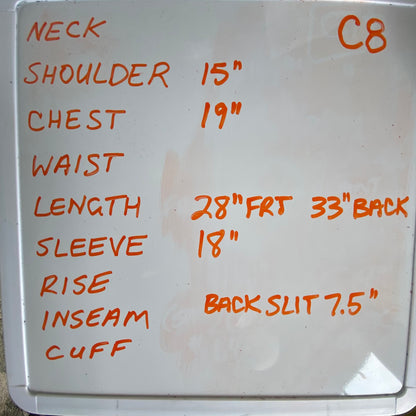 NECK C8
SHOULDER 15"
CHEST 19"
WAIST
LENGTH 28" FRT 33" BACK
SLEEVE 18"
RISE
INSEAM BACK SLIT 7.5"
CUFF